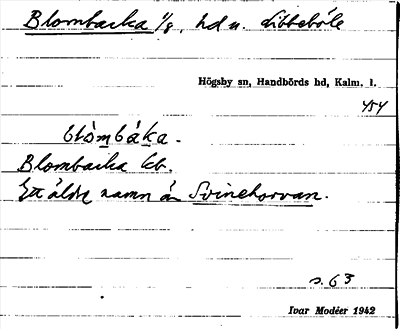 Blombacka 1/8, hd u. Libbeböle
Högsby sn, Handbörds hd, Kalm. l.
454
blòmbáka.
Blombacka lb.
Ett äldre namn än Svinehorvan.
s. 63
Ivar Modéer 1942